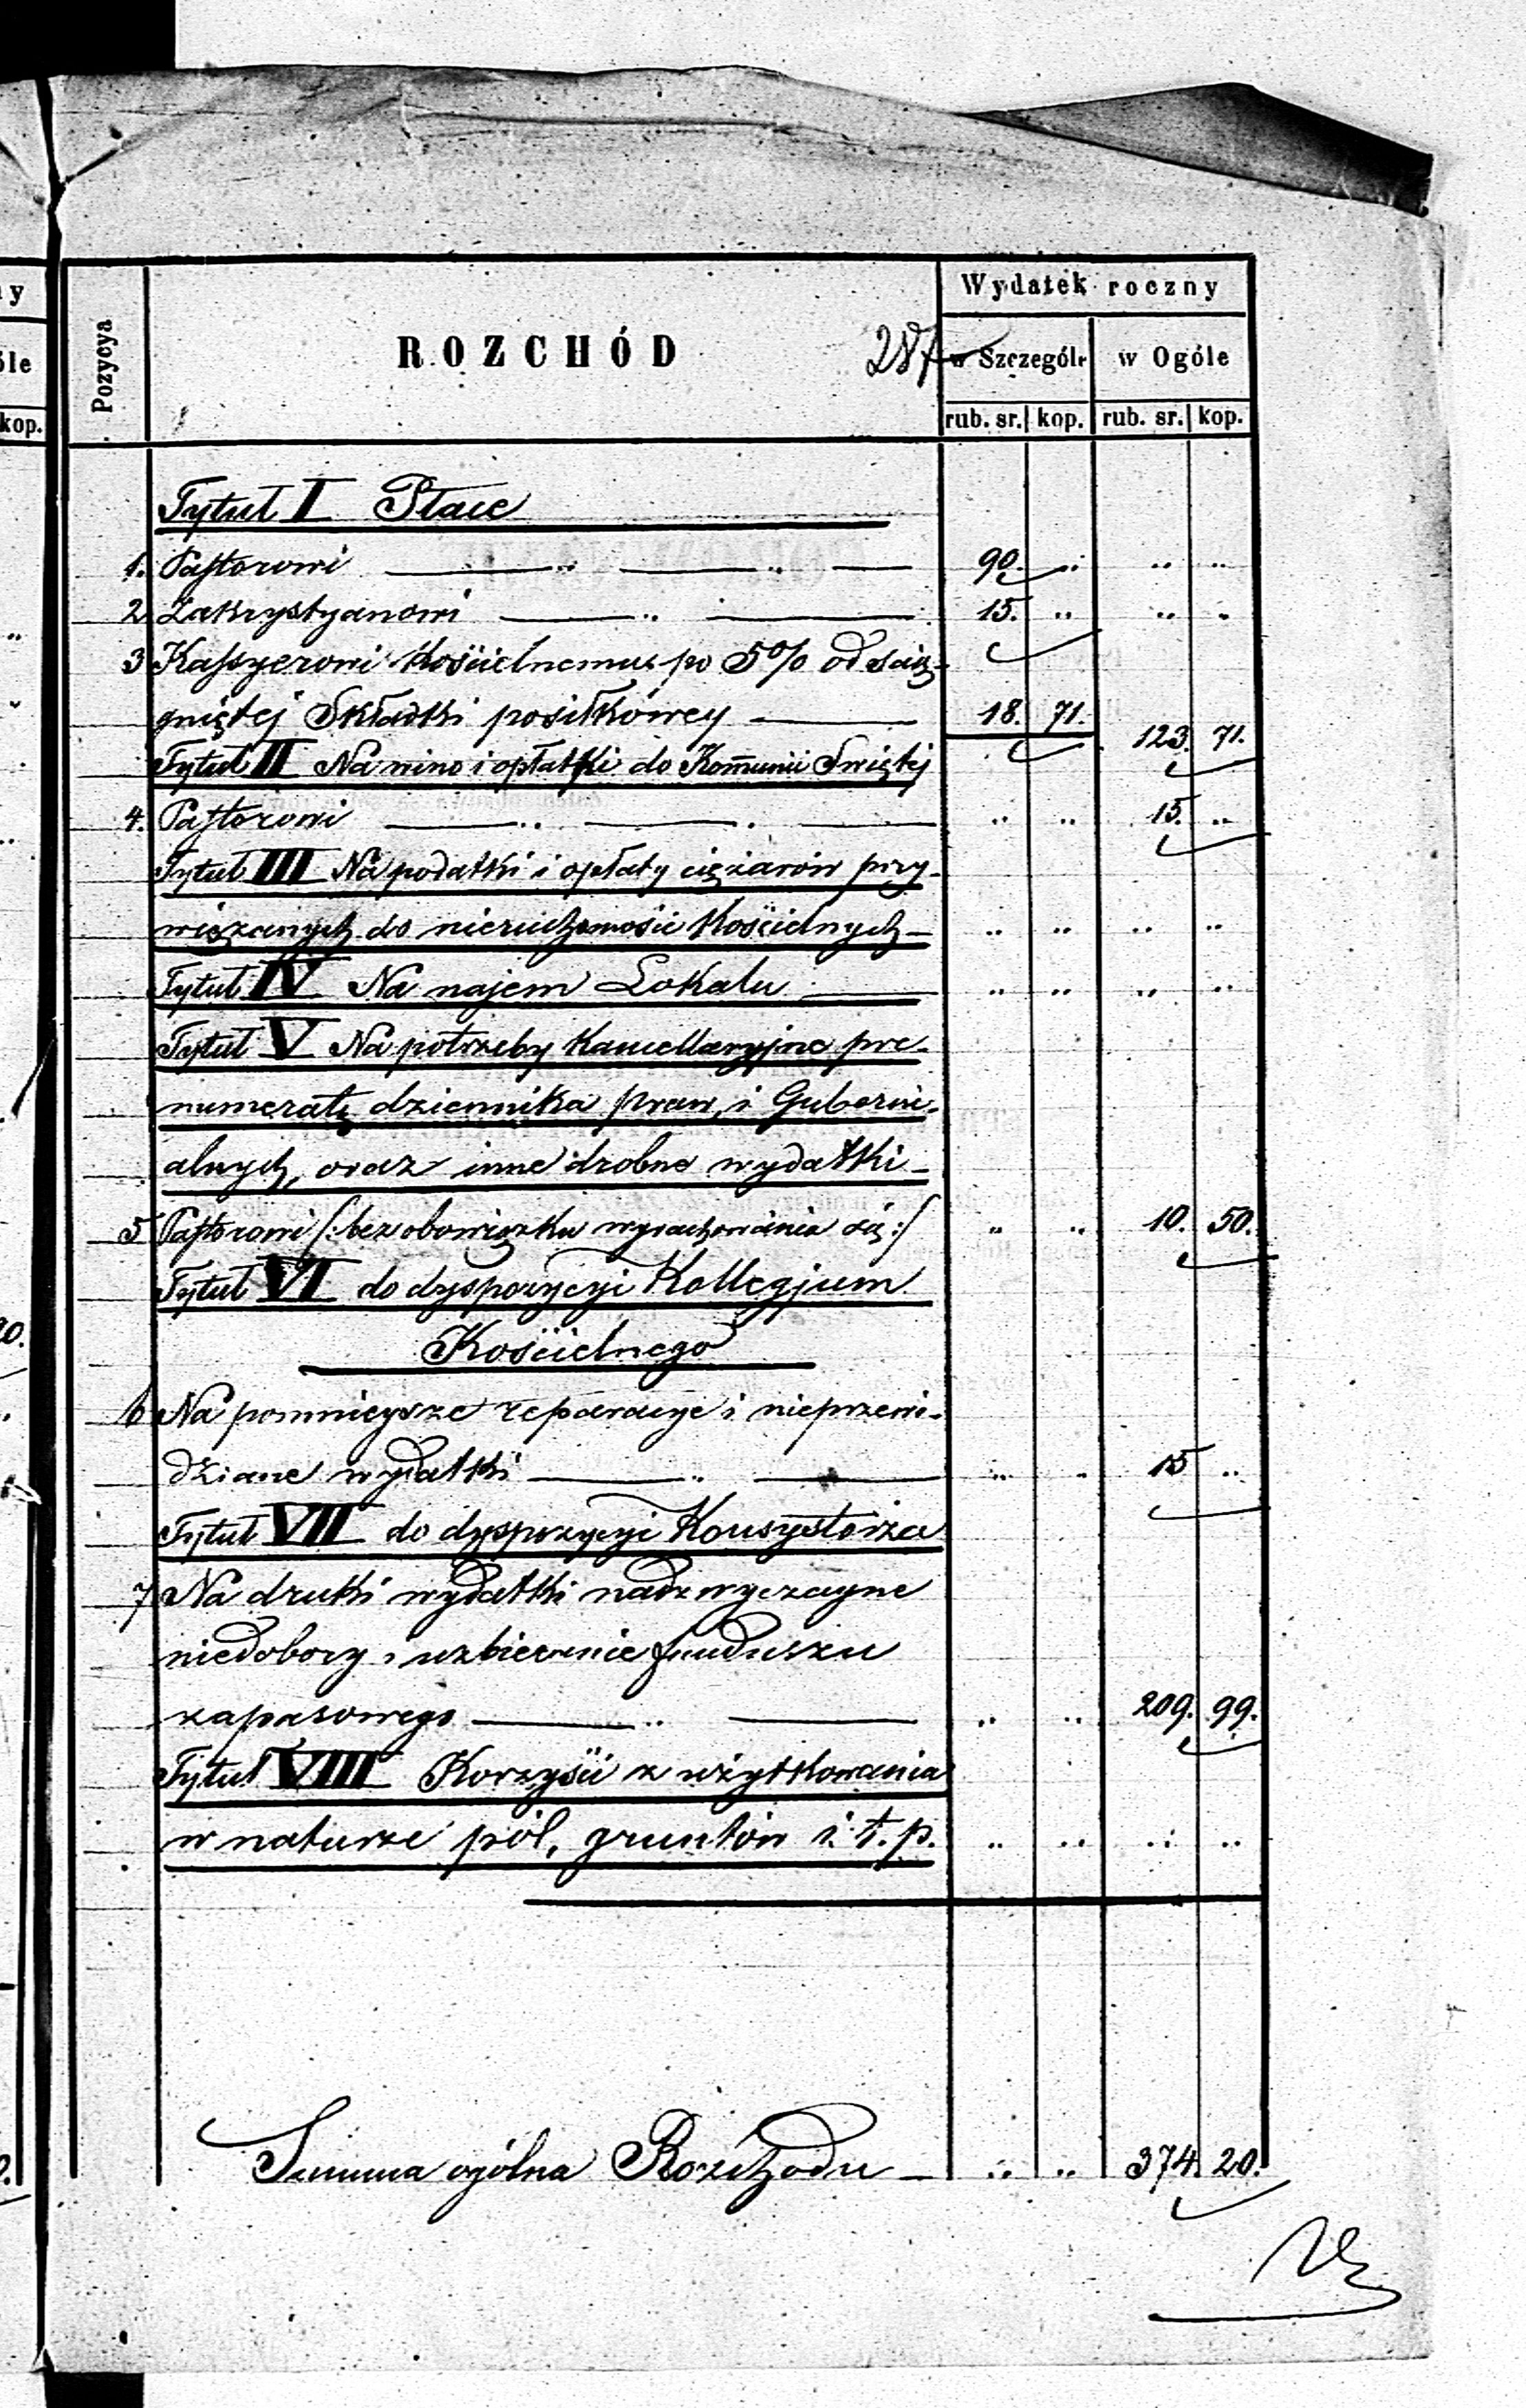 ny
Wydatek roczny
Pozycya
ROZCHÓD
287
w Szczególe
w Ogóle
óle
kop.
rub. sr. kop. rub. sr. kop.
Tytuł I Płace
1. Pastorowi — .. — .. — 90. .. .. ..
2 Zakrystyanowi — .. — 15. .. .. ..
3 Kassyerowi Kościelnemu po 5% od ścią-
gniętej Składki posiłkowey — 18. 71. 123. 71.
Tytuł II Na wino i opłatki do Komunii Swiętej
4. Pastorowi — .. — . — .. .. 15. ..
Tytuł III Na podatki i opłaty ciężarów przy-
wiązanych do nieruchomości Kościelnych — .. .. .. ..
Tytuł IV Na najem Lokalu — .. .. .. ..
Tytuł V Na potrzeby Kancellaryjne pre-
numeratę dziennika praw, i Guberni-
alnych, oraz inne drobne wydatki —
5 Pastorowi /: bez obowiązku wyrachowania się :/ .. .. 10. 50.
Tytuł VI do dyspozycyi Kollegjum
Kościelnego
6 Na pomnieysze reparacye i nieprzewi-
dziane wydatki — .. — .. .. 15 ..
Tytuł VII do dyspozycyi Konsystorza
7 Na druki wydatki nadzwyczayne
niedobory i uzbieranie funduszu
zapasowego — .. — .. .. 209. 99.
Tytuł VIII Korzyści z użytkowania
w naturze pól, gruntów i. t. p. .. .. .. ..
Summa ogólna Rozchodu — .. .. 374. 20.